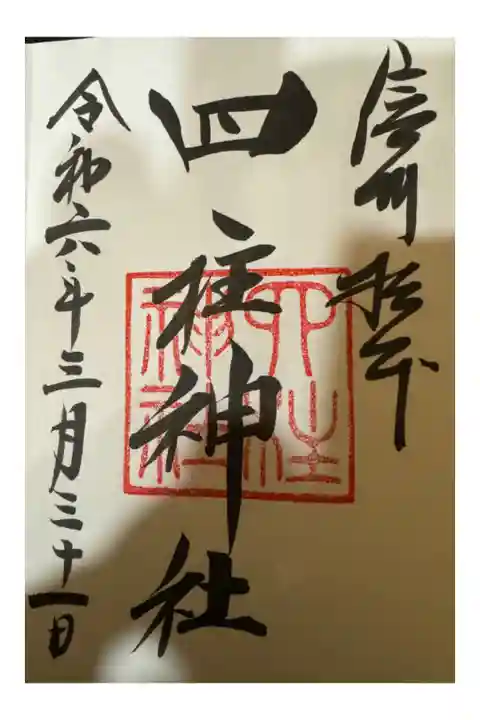 信州松本
四柱神社
四柱神社
令和六年三月三十一日